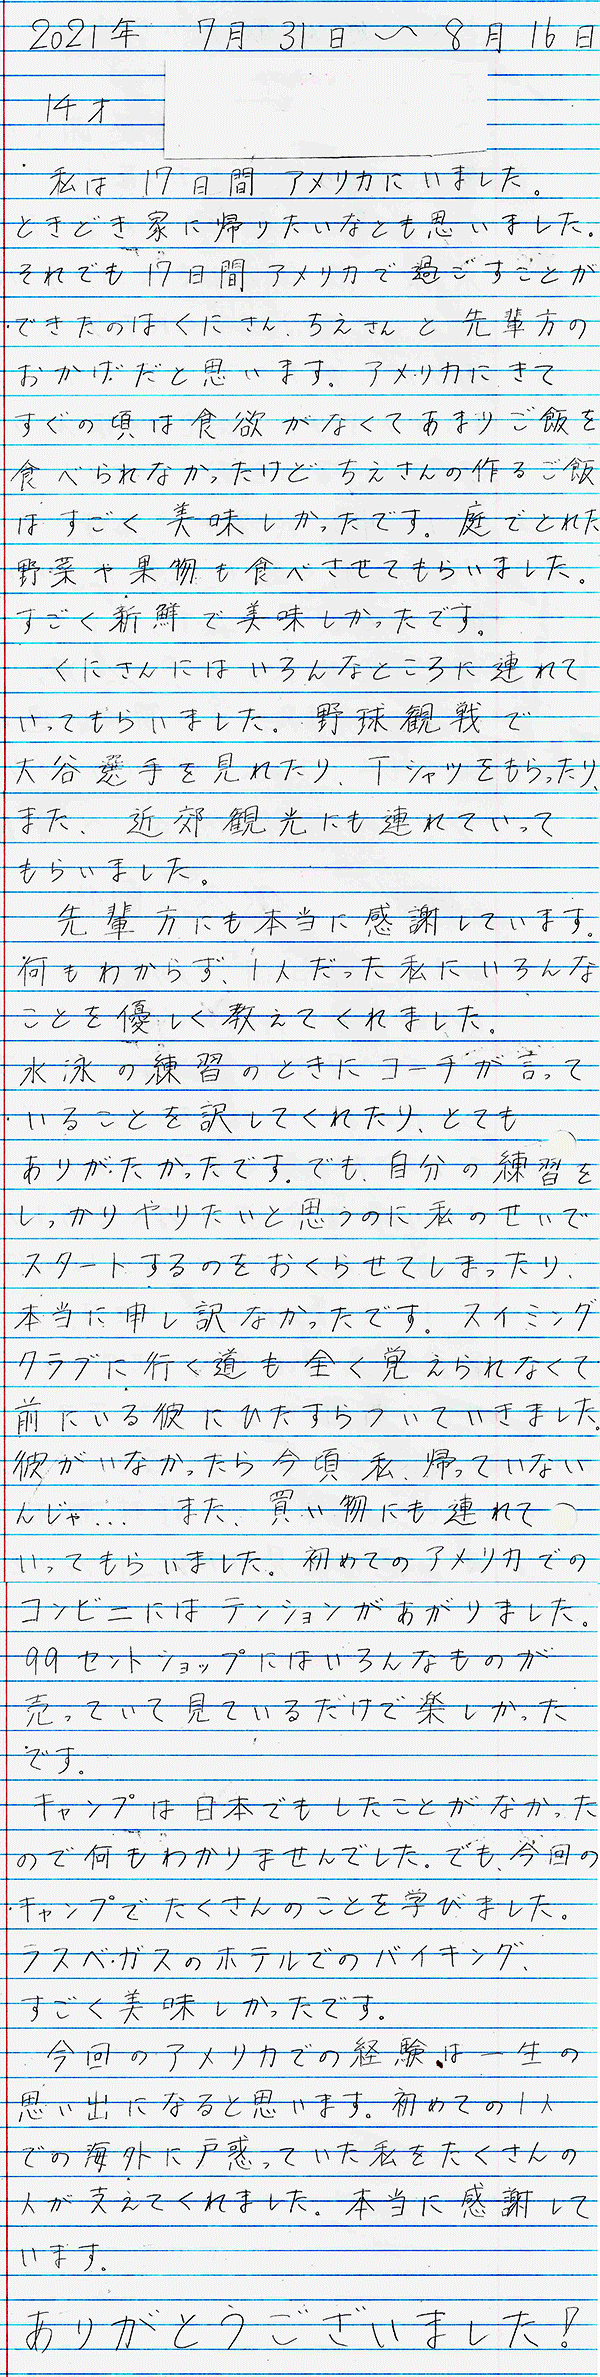 2021年 7月31日〜8月16日
14才
私は17日間アメリカにいました。
ときどき家に帰りたいなとも思いました。
それでも17日間アメリカで過ごすことが
できたのはくにさん、ちえさんと先輩方の
おかげだと思います。アメリカにきて
すぐの頃は食欲がなくてあまりご飯を
食べられなかったけどちえさんの作るご飯
はすごく美味しかったです。庭でとれた
野菜や果物も食べさせてもらいました。
すごく新鮮で美味しかったです。
くにさんにはいろんなところに連れて
いってもらいました。野球観戦で
大谷選手を見れたり、Tシャツをもらったり、
また、近郊観光にも連れていって
もらいました。
先輩方にも本当に感謝しています。
何もわからず、1人だった私にいろんな
ことを優しく教えてくれました。
水泳の練習のときにコーチが言って
いることを訳してくれたり、とても
ありがたかったです。でも、自分の練習を
しっかりやりたいと思うのに私のせいで
スタートするのをおくらせてしまったり、
本当に申し訳なかったです。スイミング
クラブに行く道も全く覚えられなくて
前にいる彼にひたすらついていきました。
彼がいなかったら今頃私、帰っていない
んじゃ... また、買い物にも連れて
いってもらいました。初めてのアメリカでの
コンビニにはテンションがあがりました。
99セントショップにはいろんなものが
売っていて見ているだけで楽しかった
です。
キャンプは日本でもしたことがなかった
ので何もわかりませんでした。でも、今回の
キャンプでたくさんのことを学びました。
ラスベガスのホテルでのバイキング、
すごく美味しかったです。
今回のアメリカでの経験は一生の
思い出になると思います。初めての1人
での海外に戸惑っていた私をたくさんの
人が支えてくれました。本当に感謝して
います。
ありがとうございました!